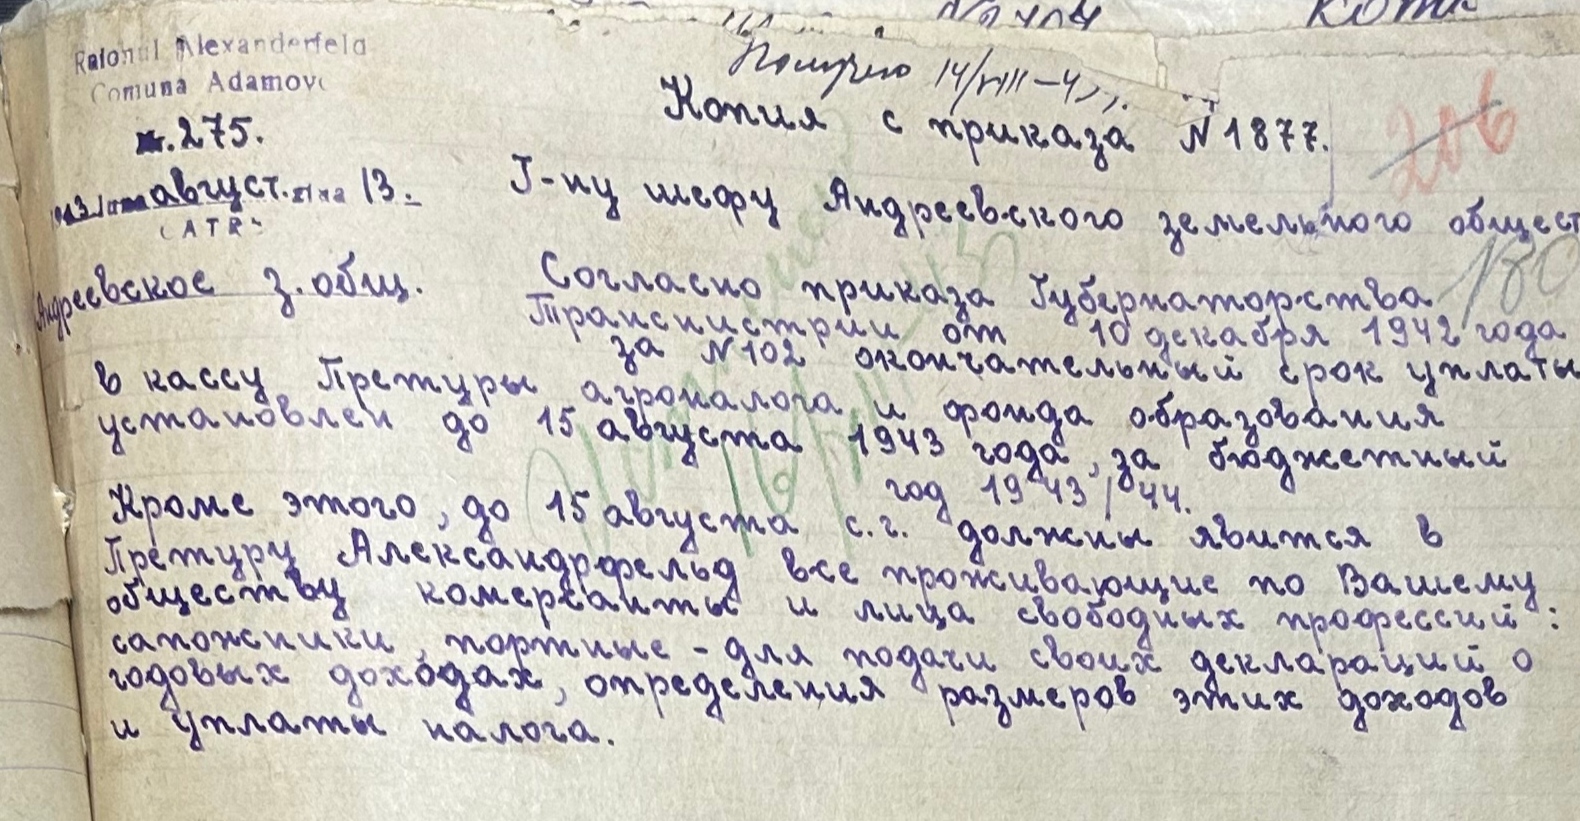 Raionul Alexanderfeld
Comuna Adamovc
№.275.
август. ziua 13.
Андреевское з. общ.
Получено 14/VIII-43
Копия с приказа N 1877.
206
Г-ну шефу Андреевского земельного общест
180
Согласно приказа Губернаторства
Транснистрии от 10 декабря 1942 года
за N 102 окончательный срок уплаты
в кассу Претуры агроналога и фонда образования
установлен до 15 августа 1943 года, за бюджетный
год 1943/44.
Кроме этого, до 15 августа с.г. должны явится в
Претуру Александрфельд все проживающие по Вашему
обществу комерсанты и лица свободных профессий:
сапожники, портные - для подачи своих деклараций о
годовых доходах, определения размеров этих доходов
и уплаты налога.